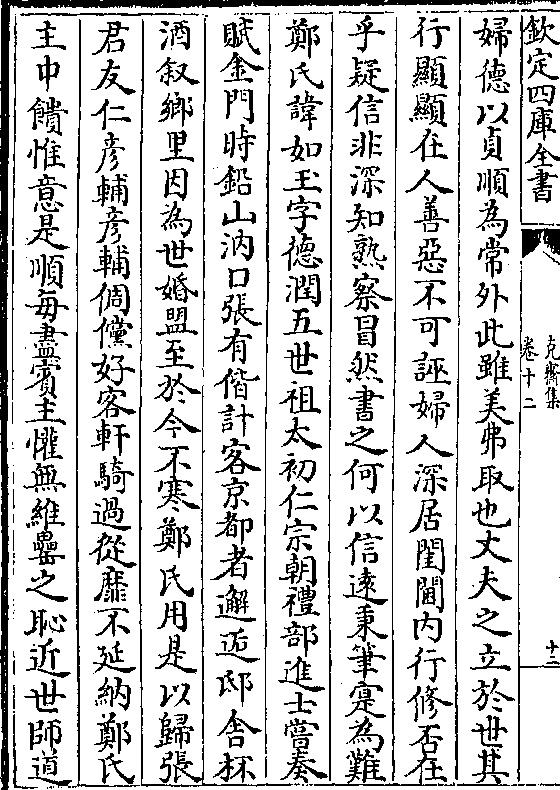 欽定四庫全書
克齋集
卷十二
十三
婦德以貞順為常外此雖美弗取也丈夫之立於世其
行顯顯在人善惡不可誣婦人深居閨閫内行修否在
乎疑信非深知熟察冒然書之何以信逺秉筆寔為難
鄭氏諱如玉字德潤五世祖太初仁宗朝禮部進士嘗奏
賦金門時鉛山汭口張有偕計客京都者邂逅邸舍杯
酒叙鄉里因為世婚盟至於今不寒鄭氏用是以歸張
君友仁彦輔彦輔倜儻好客軒騎過從靡不延納鄭氏
主中饋惟意是順每盡賓主懽無維罍之恥近世師道